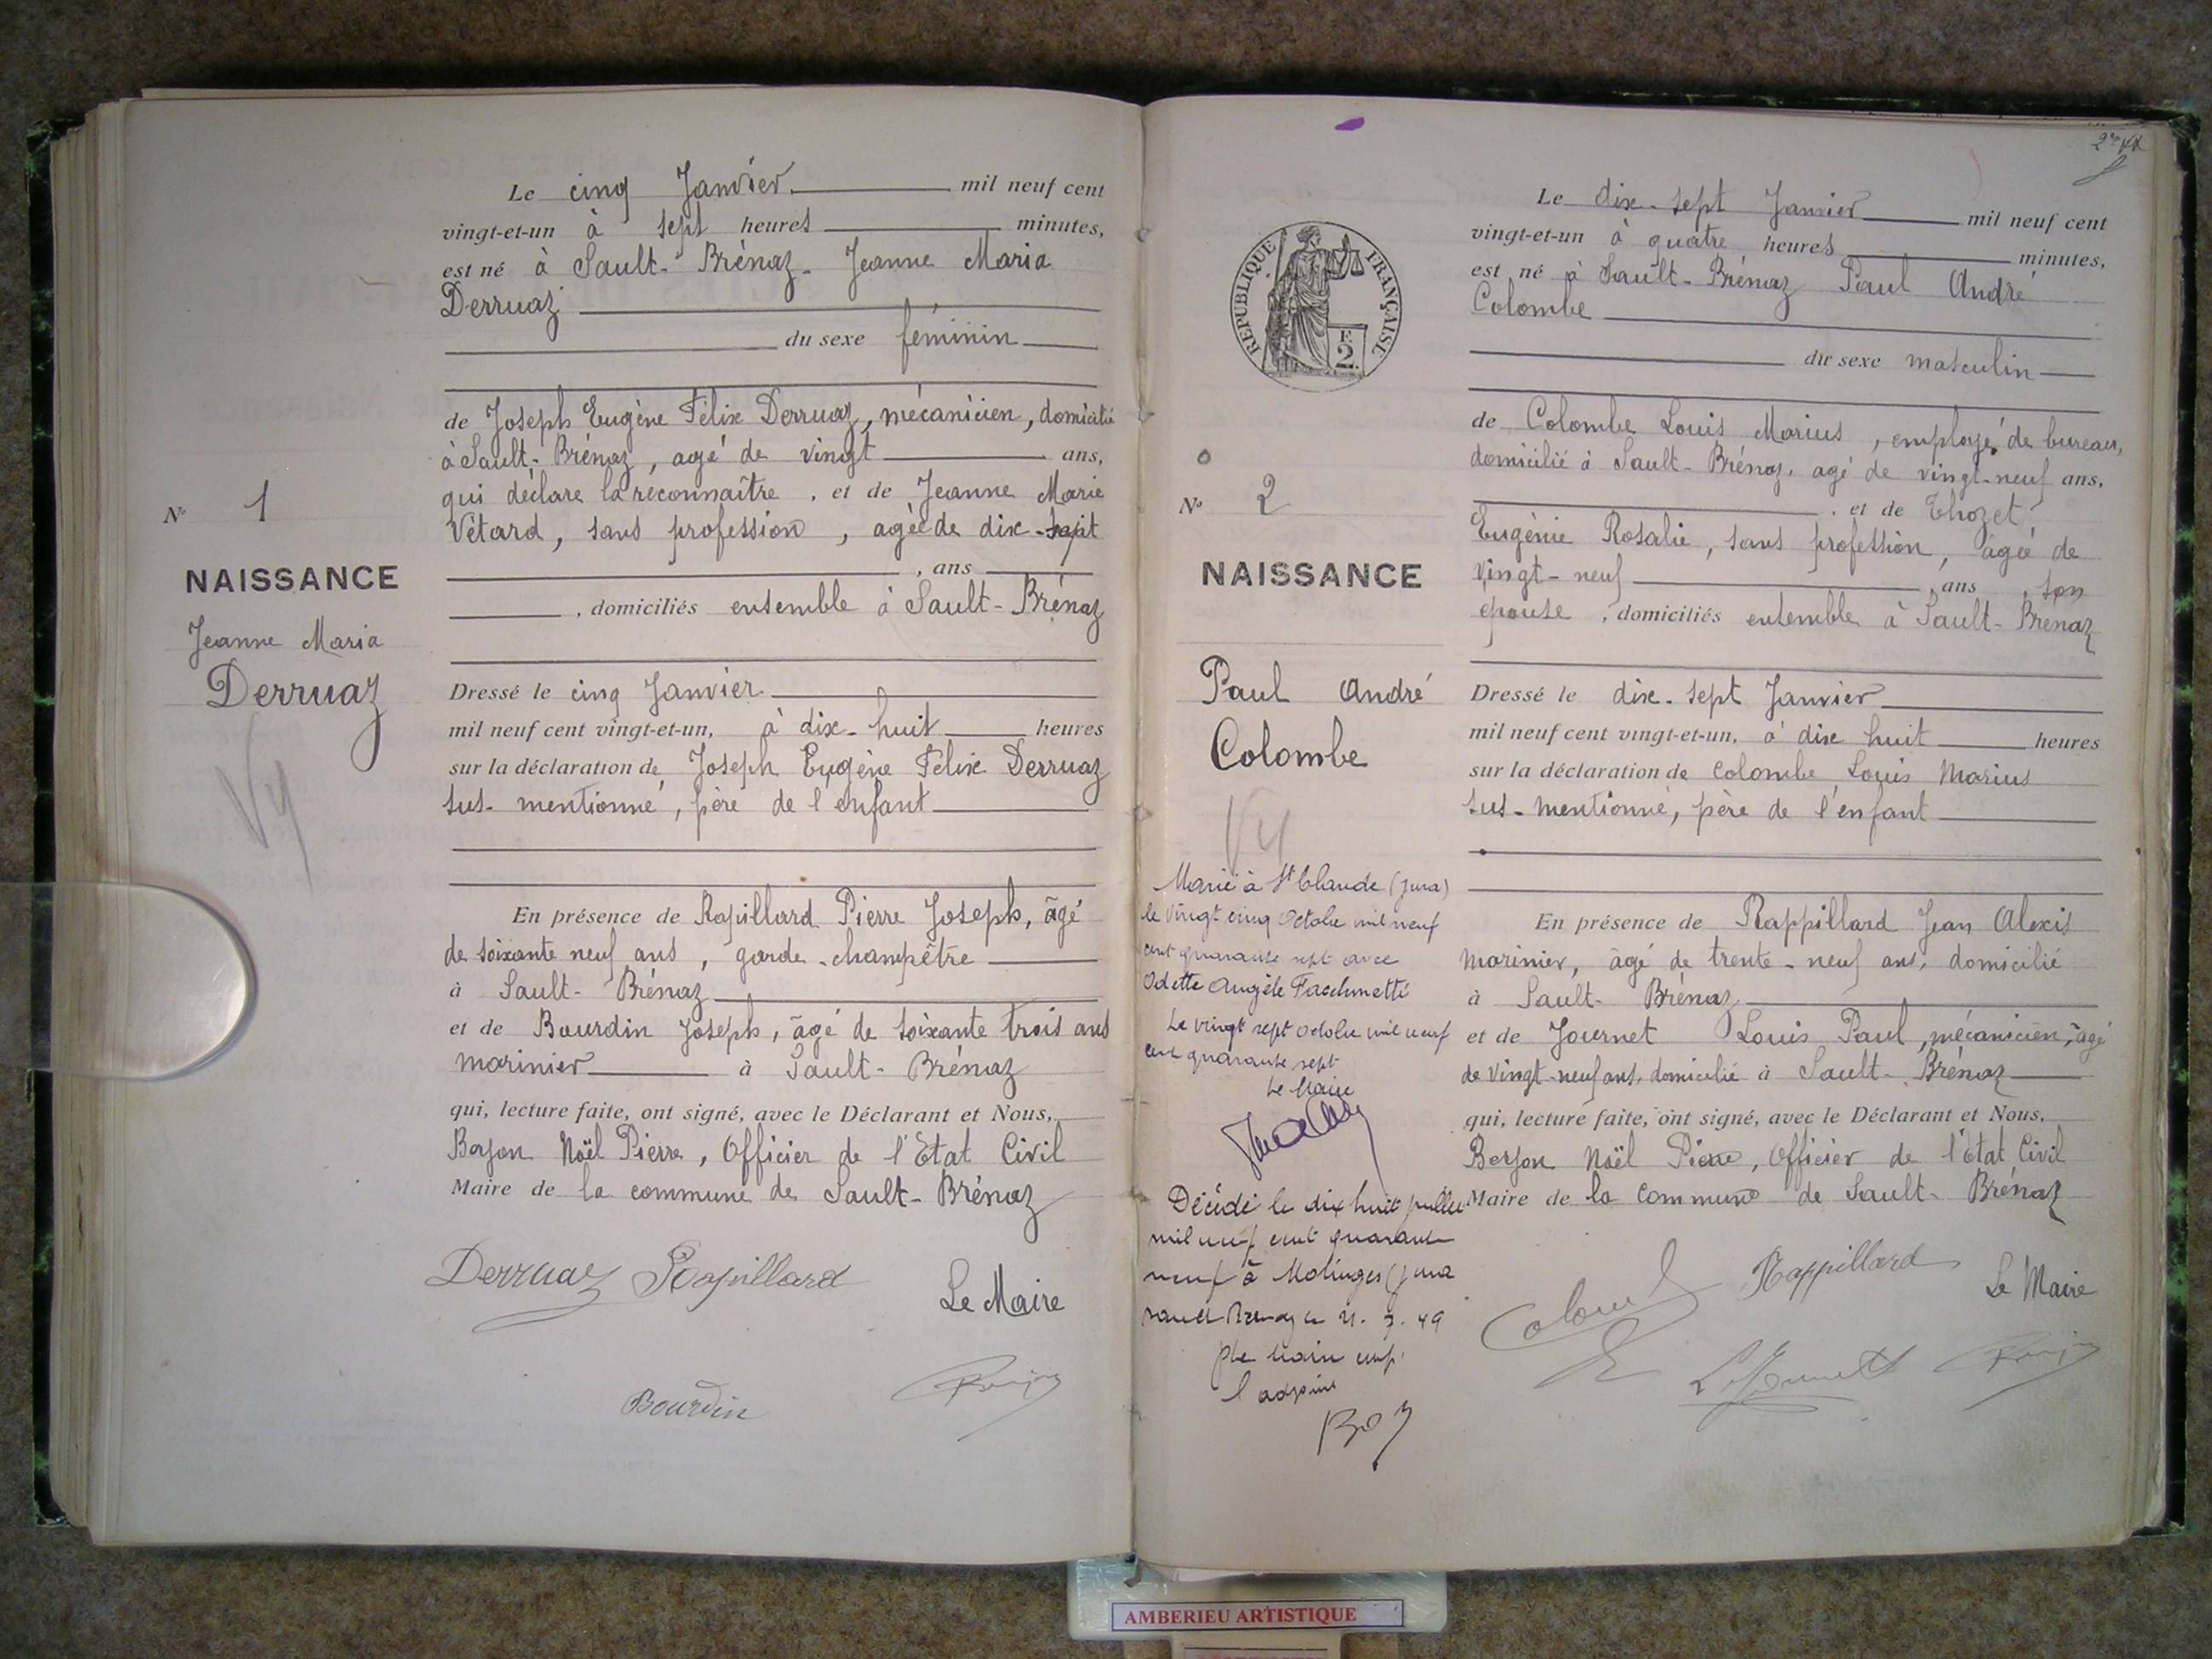 Le cinq Janvier mil neuf cent
vingt-et-un à sept heures minutes,
est né à Sault-Brénaz. Jeanne Maria
Derruaz
du sexe féminin
de Joseph Eugène Félix Derruaz, mécanicien, domicilié
à Sault-Brénaz, agé de vingt ans,
qui déclare la reconnaître, et de Jeanne Marie
Vétard, sans profession, agée de dix-sept
, ans
, domiciliés ensemble à Sault-Brénaz
N° 1
NAISSANCE
Jeanne Maria
Derruaz
Dressé le cinq Janvier
mil neuf cent vingt-et-un, à dix-huit heures
sur la déclaration de Joseph Eugène Félix Derruaz
sus-mentionné, père de l'enfant
En présence de Rapillard Pierre Joseph, âgé
de soixante neuf ans, garde-champêtre
à Sault-Brénaz
et de Bourdin Joseph, âgé de soixante trois ans
marinier à Sault-Brénaz
qui, lecture faite, ont signé, avec le Déclarant et Nous,
Noël Pierre, Officier de l'Etat Civil
Maire de la commune de Sault-Brénaz
Derruaz Rapillard
Le Maire
Bourdin
Le dix-sept Janvier mil neuf cent
vingt-et-un à quatre heures minutes,
est né à Sault-Brénaz Paul André
Colombe
du sexe masculin
REPUBLIQUE FRANÇAISE
F.
2.
de Colombe Louis Marius, employé de bureau,
domicilié à Sault-Brénaz, agé de vingt-neuf ans,
, et de Thozet
Eugénie Rosalie, sans profession, âgée de
vingt-neuf ans, son
épouse, domiciliés ensemble à Sault-Brénaz
N° 2
NAISSANCE
Paul André
Colombe
Dressé le dix-sept Janvier
mil neuf cent vingt-et-un, à dix huit heures
sur la déclaration de Colombe Louis Marius
sus-mentionné, père de l'enfant
En présence de Rappillard Jean Alexis
marinier, âgé de trente-neuf ans, domicilié
à Sault-Brénaz
et de Journet Louis Paul, mécanicien, âgé
de vingt-neuf ans, domicilié à Sault-Brénaz
qui, lecture faite, ont signé, avec le Déclarant et Nous,
Noël Pierre, Officier de l'Etat Civil
Maire de la Commune de Sault-Brénaz
Rappillard
Le Maire
Marié à St Claude (Jura)
le vingt cinq Octobre mil neuf
cent quarante sept avec
Odette Angèle Facchinetti
Le vingt sept octobre mil neuf
cent quarante sept
Le Maire
Décédé le dix huit juillet
mil neuf cent quarante
neuf à Molinges (Jura
Sault Brénaz le 21. 7. 49
l'adjoint
AMBERIEU ARTISTIQUE